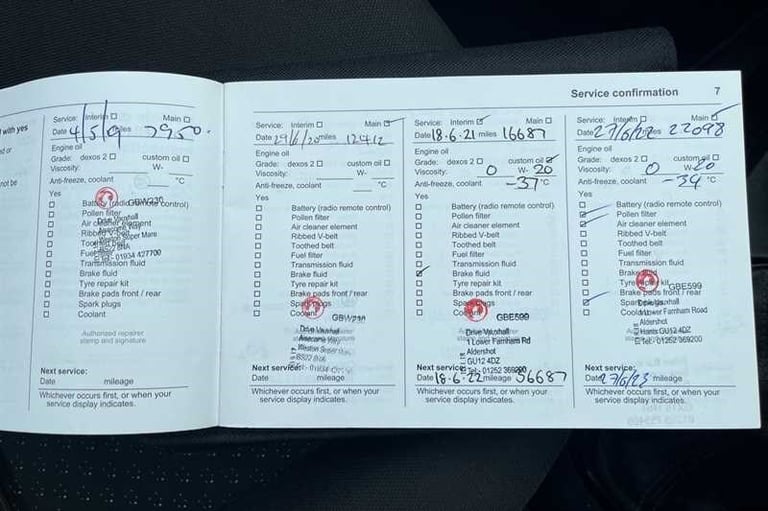 Service confirmation 7
with yes
ed or
not be
Service: Interim ☐ Main ☐
Date 4/5/9 miles 7950.
Engine oil
Grade: dexos 2 ☐ custom oil ☐
Viscosity: W-
Anti-freeze, coolant °C
Yes
☐ Battery (radio remote control)
GBW230
☐ Pollen filter
☐ Air cleaner element
☐ Ribbed V-belt
☐ Toothed belt
☐ Fuel filter
☐ Transmission fluid
☐ Brake fluid
☐ Tyre repair kit
☐ Brake pads front / rear
☐ Spark plugs
☐ Coolant
Drive Vauxhall
Weston Super Mare
Tel - 01934 427700
Authorized repairer
stamp and signature
Next service:
Date mileage
Whichever occurs first, or when your
service display indicates.
Service: Interim ☐ Main ☑
Date 29/6/20 miles 12412
Engine oil
Grade: dexos 2 ☐ custom oil ☐
Viscosity: W-
Anti-freeze, coolant °C
Yes
☐ Battery (radio remote control)
☐ Pollen filter
☐ Air cleaner element
☐ Ribbed V-belt
☐ Toothed belt
☐ Fuel filter
☐ Transmission fluid
☐ Brake fluid
☐ Tyre repair kit
☐ Brake pads front / rear
☐ Spark plugs
☐ Coolant
Drive Vauxhall
Next service:
Date mileage
Whichever occurs first, or when your
service display indicates.
Service: Interim ☑ Main ☐
Date 18.6.21 miles 16687
Engine oil
Grade: dexos 2 ☐ custom oil ☑
Viscosity: 0 W- 20
Anti-freeze, coolant -37 °C
Yes
☐ Battery (radio remote control)
☐ Pollen filter
☐ Air cleaner element
☐ Ribbed V-belt
☐ Toothed belt
☐ Fuel filter
☐ Transmission fluid
☑ Brake fluid
☐ Tyre repair kit
☐ Brake pads front / rear
☐ Spark plugs
☐ Coolant
GBE599
Drive Vauxhall
1 Lower Farnham Rd
Aldershot
GU12 4DZ
Tel: 01252 369200
Next service:
Date 18.6.22 mileage 36687
Whichever occurs first, or when your
service display indicates.
Service: Interim ☐ Main ☑
Date 27/6/22 22098
Engine oil
Grade: dexos 2 ☐ custom oil ☐
Viscosity: 0 W- 20
Anti-freeze, coolant -34 °C
Yes
☐ Battery (radio remote control)
☑ Pollen filter
☑ Air cleaner element
☐ Ribbed V-belt
☐ Toothed belt
☐ Fuel filter
☐ Transmission fluid
☐ Brake fluid
☐ Tyre repair kit
☐ Brake pads front / rear
☑ Spark plugs
☐ Coolant
GBE599
Drive Vauxhall
1 Lower Farnham Road
Aldershot
Hants GU12 4DZ
Tel: 01252 369200
Next service:
Date 27/6/23 mileage
Whichever occurs first, or when your
service display indicates.